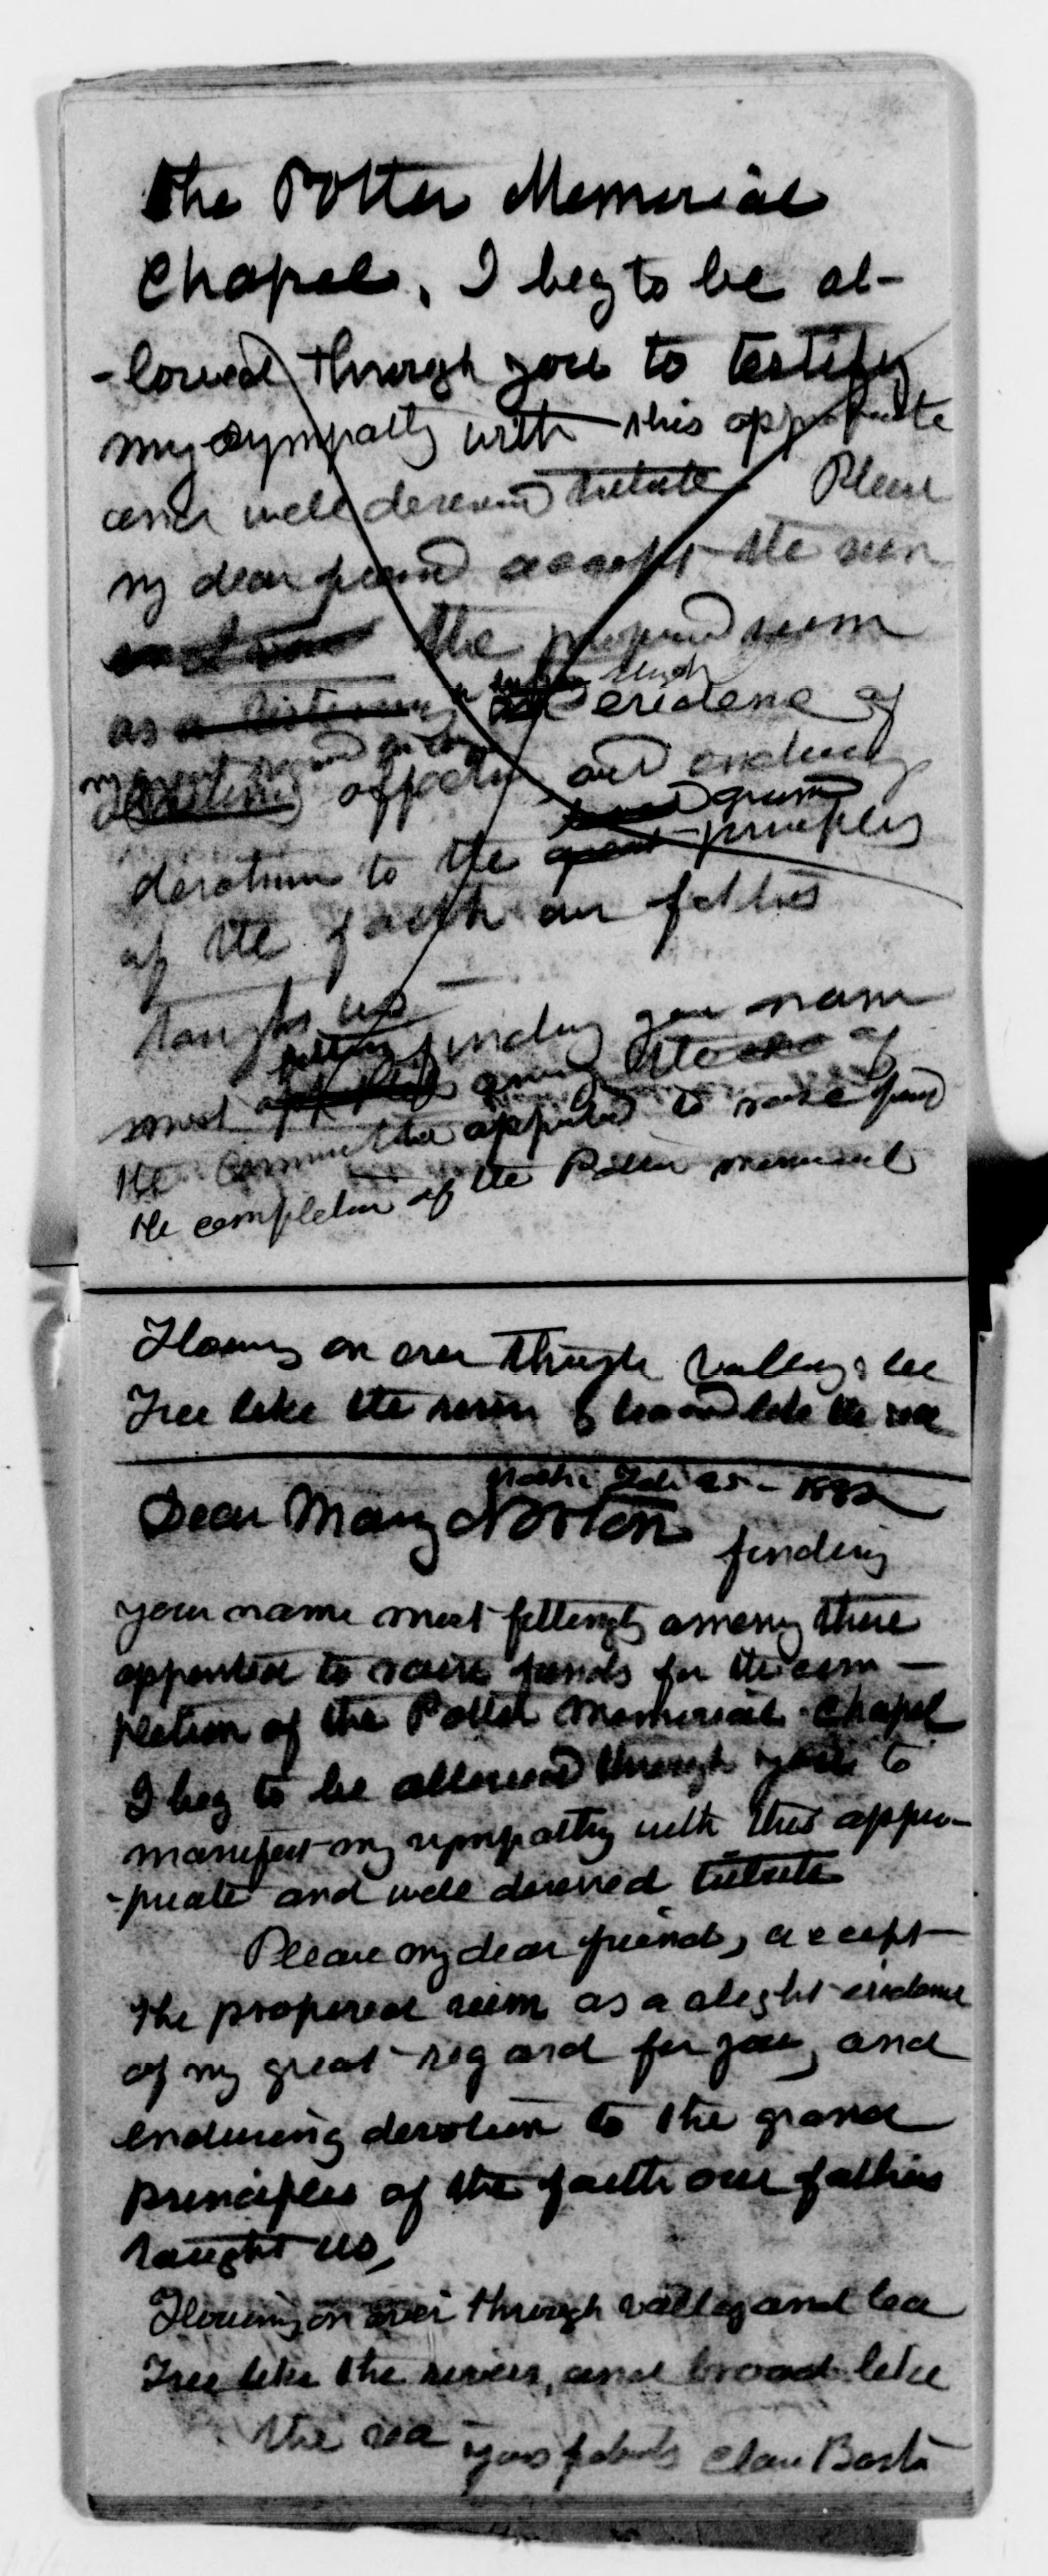 the Potter Memorial
Chapel, I beg to be al-
-lowed through you to testify
my sympathy with this appropriate
and well deserved tribute. Please
my dear friend accept the sum
the proposed sum
as a slight evidence of
my affection and enduring
devotion to the grand principles
of the faith our fathers
taught us -
most fitting finding your name
among those of
the committee appointed to raise fund
the completion of the Potter memorial
Flowing on ever through valley & lea
Free like the river & broad like the sea
Feb 25 - 1882
Dear Mary Norton
finding
your name most fittingly among those
appointed to raise funds for the com-
pletion of the Potter Memorial Chapel
I beg to be allowed through you to
manifest my sympathy with this appro-
-priate and well deserved tribute
Please my dear friend, accept
the proposed sum as a slight evidence
of my great regard for you, and
enduring devotion to the grand
principles of the faith our fathers
taught us,
Flowing on ever through valley and lea
Free like the river, and broad like
the sea
yours Clara Barton